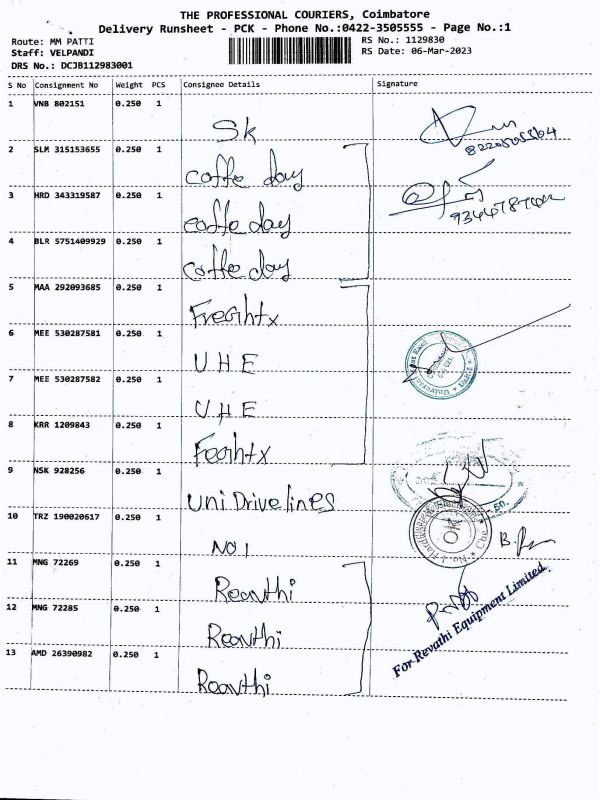 THE PROFESSIONAL COURIERS, Coimbatore
Delivery Runsheet - PCK - Phone No.:0422-3505555 - Page No.:1
Route: MM PATTI
RS No.: 1129830
Staff: VELPANDI
RS Date: 06-Mar-2023
DRS No.: DCJB112983001
S No Consignment No Weight PCS Consignee Details Signature
1 VNB 802151 0.250 1 Sk
2 SLM 315153655 0.250 1 coffe day
3 HRD 343319587 0.250 1 coffe day
4 BLR 5751409929 0.250 1 coffe day
5 MAA 292093685 0.250 1 Freightx
6 MEE 530287581 0.250 1 UHE
7 MEE 530287582 0.250 1 UHE
8 KRR 1209843 0.250 1
9 NSK 928256 0.250 1 Uni Drivelines
10 TRZ 190020617 0.250 1 NO.1
11 MNG 72269 0.250 1
12 MNG 72285 0.250 1
13 AMD 26390982 0.250 1
For Revathi Equipment Limited.